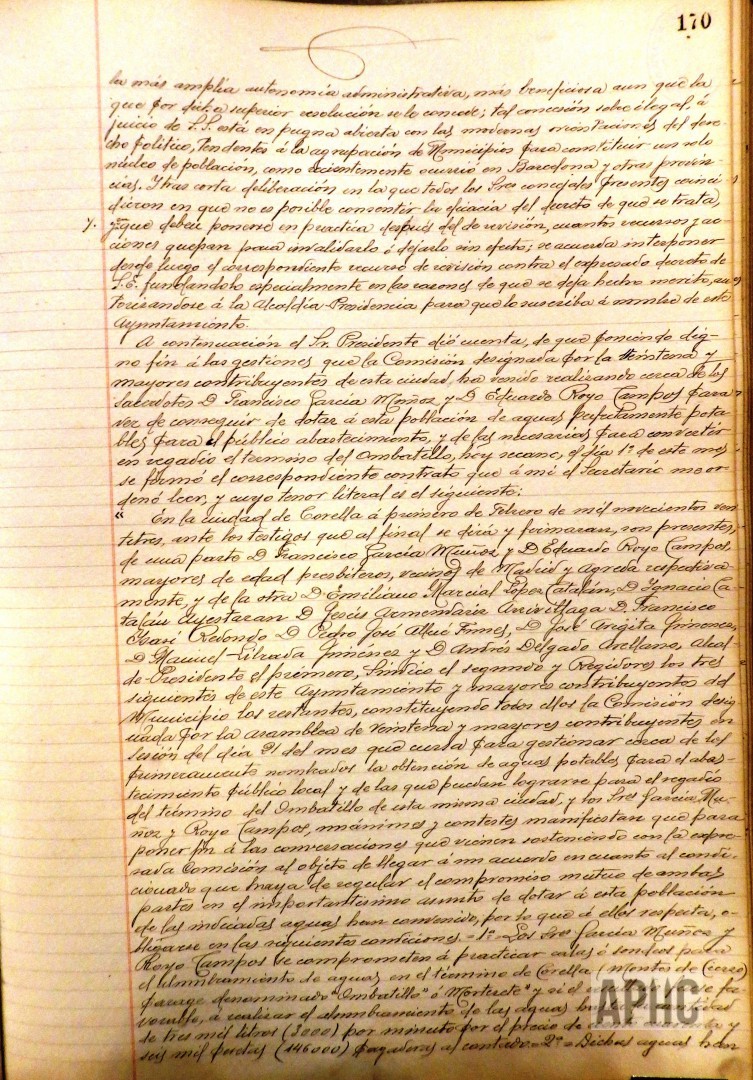 170
la más amplia autonomía administrativa, más beneficiosa aun que la
que por dicha superior resolución se le concede; tal concesión sobre ilegal, á
juicio de S.S. está en pugna abierta con las modernas orientaciones del dere-
cho político, tendentes á la agrupación de Municipios para constituir un solo
núcleo de población, como recientemente ocurrió en Barcelona y otras provin-
cias. Y tras corta deliberación en la que todos los Sres concejales presentes coinci-
dieron en que no es posible consentir la eficacia del decreto de que se trata,
y que deben ponerse en practica después del de revisión, cuantos recursos y ac-
ciones quepan para invalidarlo ó dejarlo sin efecto; se acuerda interponer
desde luego el correspondiente recurso de revisión contra el expresado decreto de
S.E. fundandolo especialmente en las razones de que se deja hecho merito, au-
torizandose á la Alcaldía-Presidencia para que lo suscriba á nombre de este
Ayuntamiento.
A continuación el Sr. Presidente dió cuenta, de que poniendo dig-
no fin á las gestiones que la Comisión designada por la Veintena y
mayores contribuyentes de esta ciudad, ha venido realizando cerca de los
Sacerdotes D. Francisco García Muñoz y D. Eduardo Royo Campos para
ver de conseguir de dotar á esta población de aguas perfectamente pota-
bles para el público abastecimiento, y de las necesarias para convertir
en regadio el termino del Ombatillo, hoy secano, el día 1º de este mes
se formó el correspondiente contrato que á mi el Secretario me or-
denó leer, y cuyo tenor literal es el siguiente:
“ En la ciudad de Corella á primero de Febrero de mil novecientos vein-
titres, ante los testigos que al final se dirá y firmaran, son presentes,
de una parte D. Francisco García Muñoz y D. Eduardo Royo Campos,
mayores de edad presbiteros, vecinos de Madrid y Agreda respectiva-
mente, y de la otra D. Emiliano Marcial Lopez Catalán, D. Ignacio Ca-
talán Ayestaran D. Jesús Armendariz Arrivillaga D. Francisco
Redondo D. Pedro José D. José Arigita Jimenez,
D. Manuel Librada Jimenez y D. Andrés Delgado Arellano, Alcal-
de-Presidente el primero, Síndico el segundo y Regidores los tres
siguientes de este Ayuntamiento y mayores contribuyentes del
Municipio los restantes, constituyendo todos ellos la Comisión desig-
nada por la asamblea de Veintena y mayores contribuyentes en
sesión del día del mes que cursa para gestionar cerca de los
primeramente nombrados la obtención de aguas potables para el abas-
tecimiento público local y de las que puedan lograrse para el regadio
del término del Ombatillo de esta misma ciudad, y los Sres García Mu-
ñoz y Royo Campos, unánimes y contestes manifiestan que para
poner fin á las conversaciones que vienen sosteniendo con la expre-
sada Comisión al objeto de llegar á un acuerdo en cuanto al condi-
cionado que haya de regular el compromiso mutuo de ambas
partes en el importantisimo asunto de dotar á esta población
de las indicadas aguas han convenido, por lo que á ellos respecta, o-
bligarse en las siguientes condiciones = 1ª = Los Sres García Muñoz y
Royo Campos se comprometen á practicar calas ó sondeos para
el alumbramiento de aguas en el término de Corella (Montes de Cierzo)
parage denominado "Ombatillo" ó "Morterete" y si el
vorable, á realizar el alumbramiento de las aguas
de tres mil litros (3000) por minuto por el precio de
seis mil pesetas (146000) pagaderas al contado = 2ª = Dichas aguas han
APHC